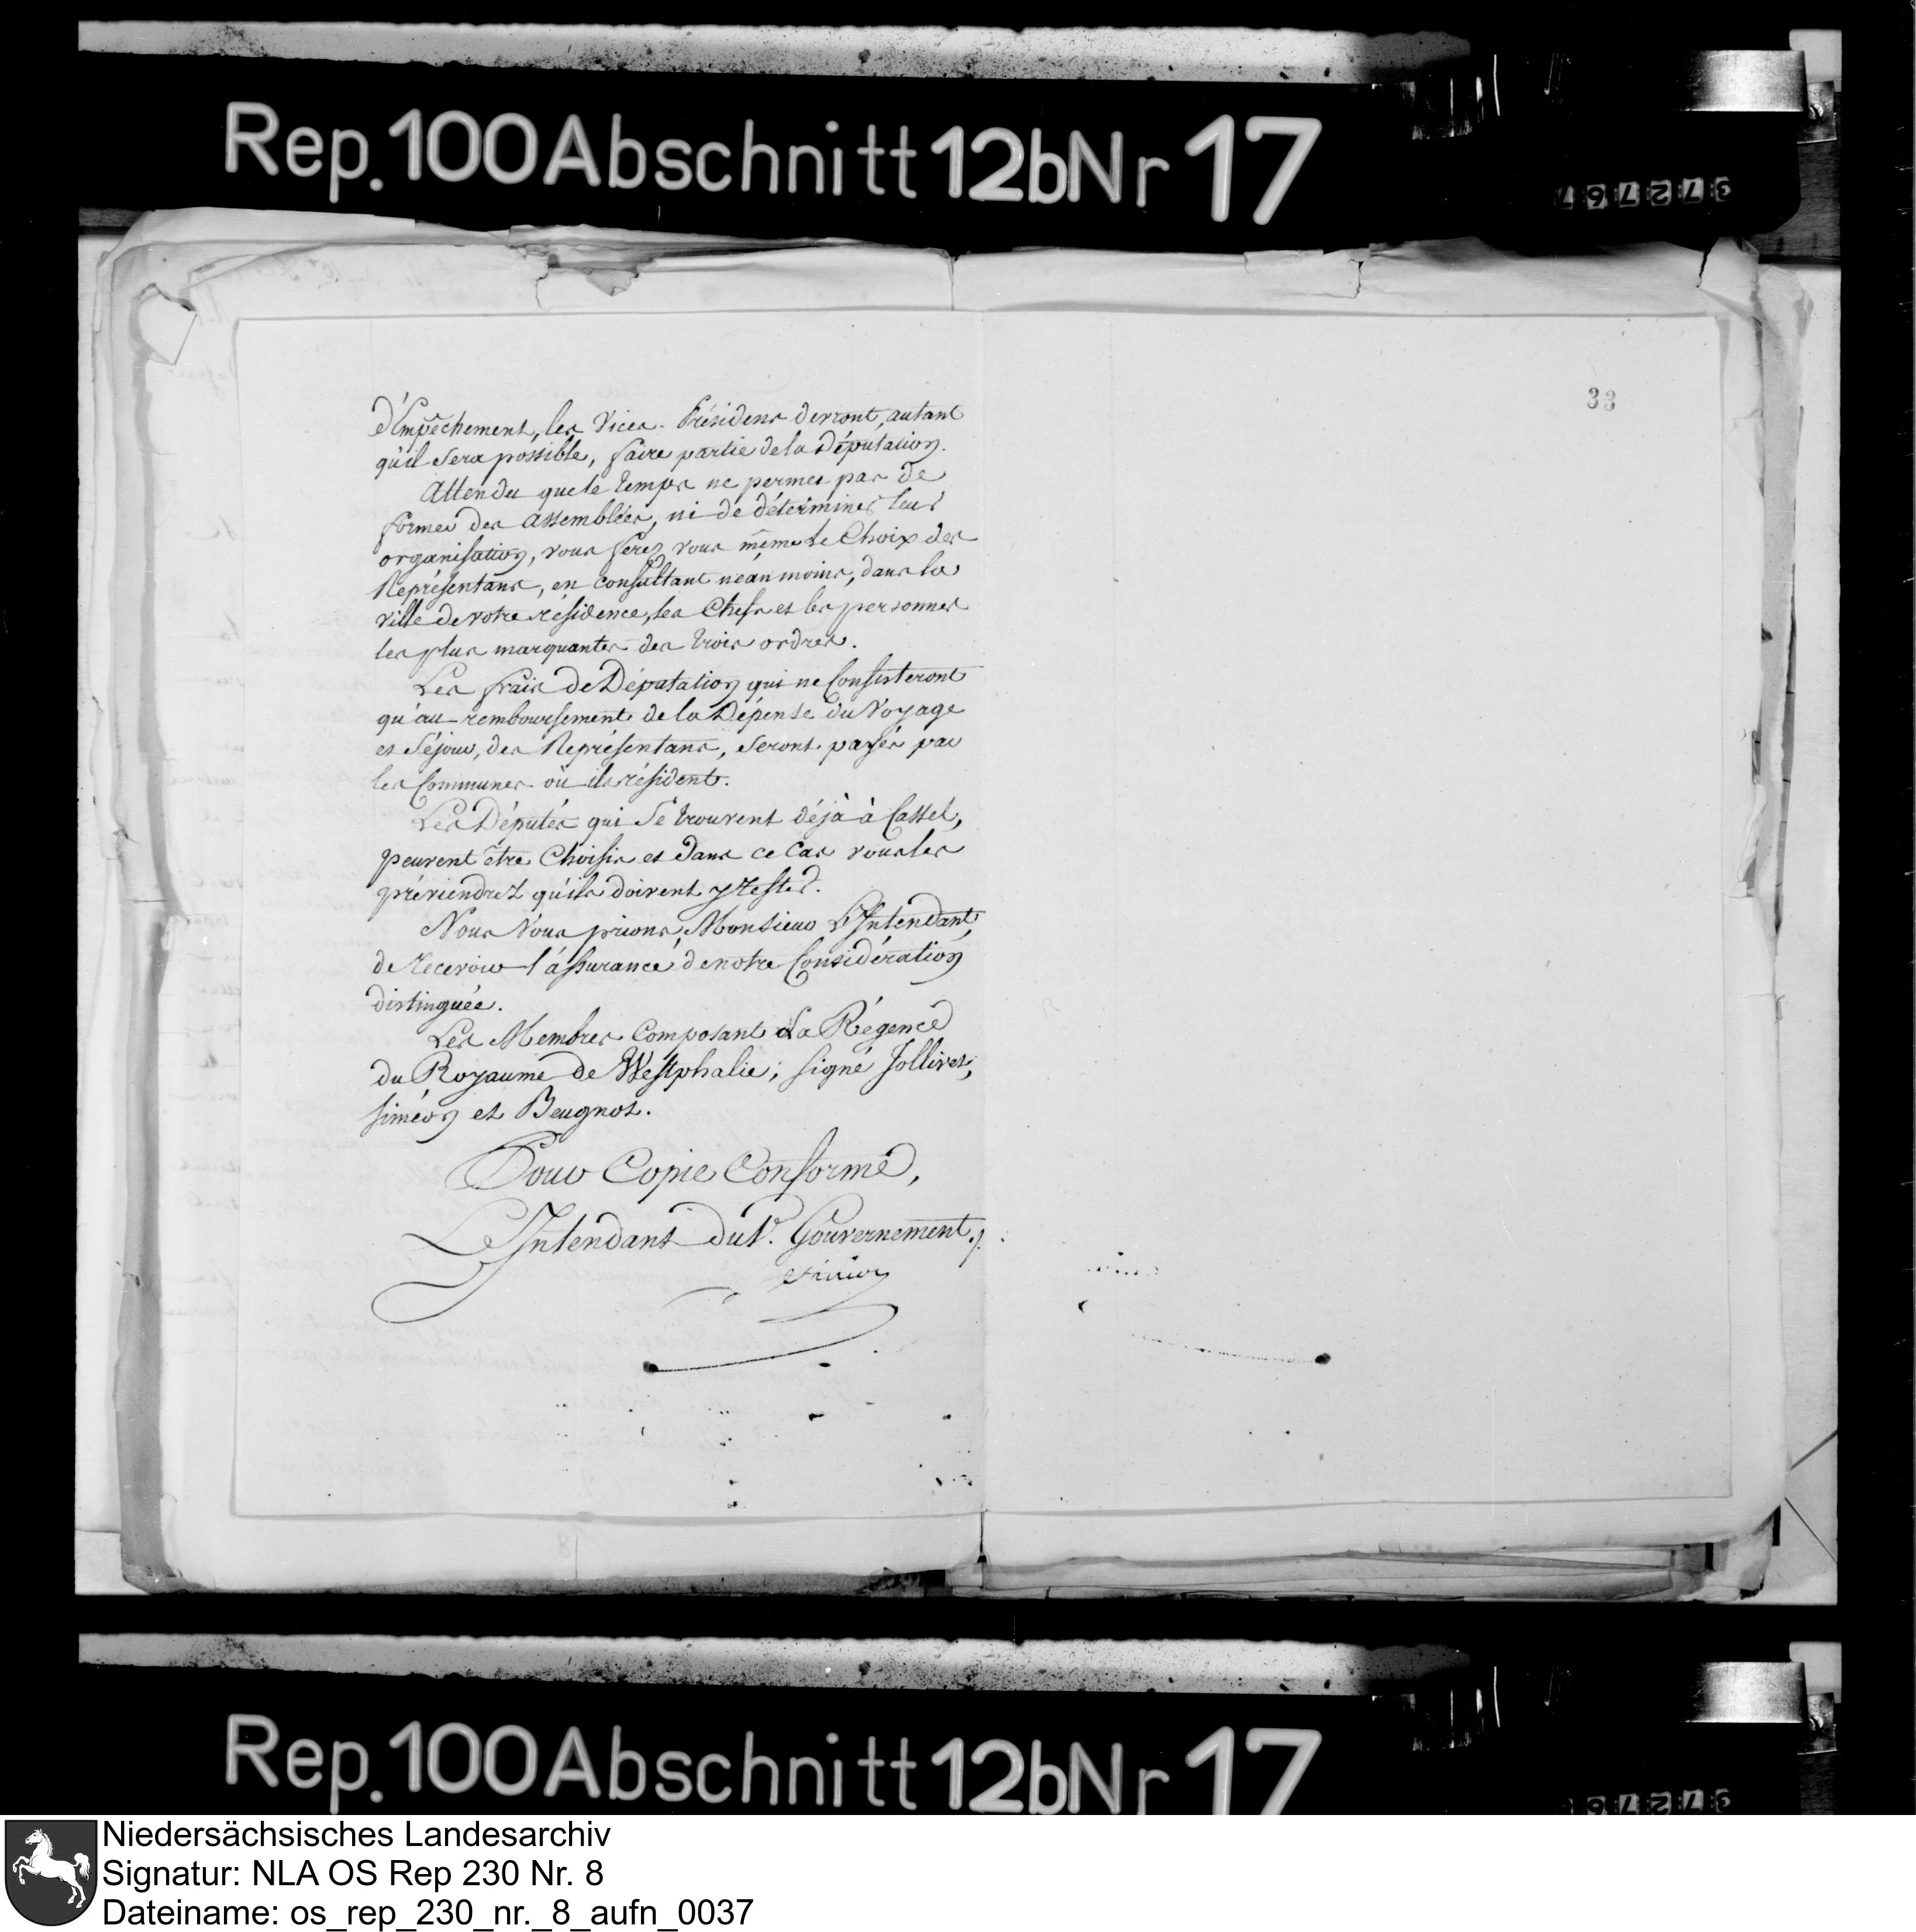 Rep. 100 Abschnitt 12b Nr 17
372767
33
d'Empêchement, les Vices-Présidens devront, autant
qu'il sera possible, faire partie de la Députation.
Attendu que le temps ne permet pas de
former des assemblées, ni de déterminer leur
organisation, vous ferez vous même le Choix des
Représentans, en consultant néanmoins, dans la
ville de votre résidence, les Chefs et les personnes
les plus marquantes des trois ordres.
Les frais de Députation qui ne Consisteront
qu'au remboursement de la Dépense du Voyage
et Séjour, des Représentans, seront payés par
les Communes où ils résident.
Les Députés qui se trouvent déjà à Cassel,
peuvent être Choisis et dans ce Cas vous les
préviendrez qu'ils doivent y rester.
Nous Vous prions, Monsieur L'Intendant,
de recevoir l'assurance de notre Considération
distinguée.
Les Membres Composant La Régence
du Royaume de Westphalie; signé Jollivet,
Siméon et Beugnot.
Pour Copie Conforme,
L'Intendant du 1.er Gouvernement,
Rep. 100 Abschnitt 12b Nr 17
Niedersächsisches Landesarchiv
Signatur: NLA OS Rep 230 Nr. 8
Dateiname: os_rep_230_nr._8_aufn_0037